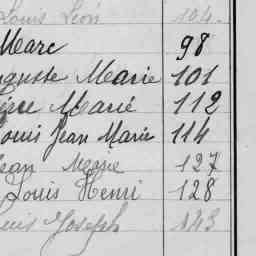 Louis Léon 104
Marc 98
Auguste Marie 101
Marie 112
Louis Jean Marie 114
Jean Marie 127
Louis Henri 128
Louis Joseph 143